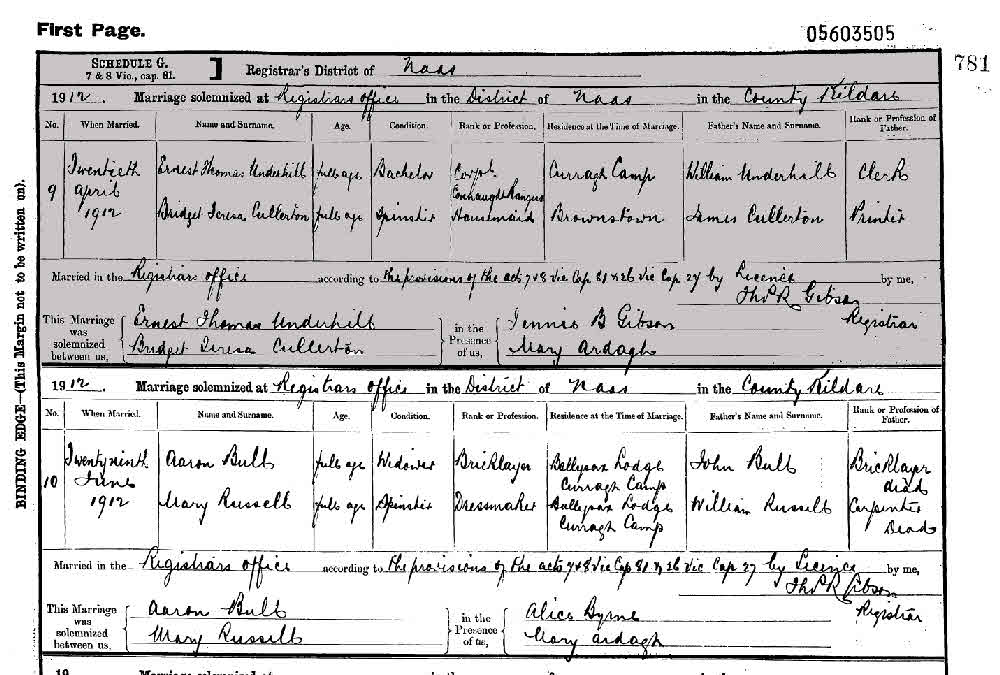 First Page.
05603505
781
SCHEDULE G.
7 & 8 Vic., cap. 81.
Registrar's District of Naas
1912. Marriage solemnized at Registrars office in the District of Naas in the County Kildare
No. When Married. Name and Surname. Age. Condition. Rank or Profession. Residence at the Time of Marriage. Father's Name and Surname. Rank or Profession of Father.
9 Twentieth April 1912 Ernest Thomas Underhill full age Bachelor Corpl Connaught Rangers Curragh Camp William Underhill Clerk
Bridget Teresa Cullerton full age Spinster Housemaid Brownstown James Cullerton Printer
Married in the Registrars office according to the provisions of the acts 7 & 8 Vic Cap 81 & 26 Vic Cap 27 by Licence by me,
Thos R Gibson
Registrar
This Marriage was solemnized between us, Ernest Thomas Underhill
Bridget Teresa Cullerton
in the Presence of us, B Gibson
Mary Ardagh
BINDING EDGE—(This Margin not to be written on).
1912. Marriage solemnized at Registrars office in the District of Naas in the County Kildare
No. When Married. Name and Surname. Age. Condition. Rank or Profession. Residence at the Time of Marriage. Father's Name and Surname. Rank or Profession of Father.
10 Twenty ninth June 1912 Aaron Bull full age Widower Bricklayer Ballysax Lodge Curragh Camp John Bull Bricklayer dead
Mary Russell full age Spinster Dressmaker Ballysax Lodge Curragh Camp William Russell Carpenter Dead
Married in the Registrars office according to the provisions of the acts 7 & 8 Vic Cap 81 & 26 Vic Cap 27 by Licence by me,
Thos R Gibson
Registrar
This Marriage was solemnized between us, Aaron Bull
Mary Russell
in the Presence of us, Alice Byrne
Mary Ardagh
19 Marriage solemnized at